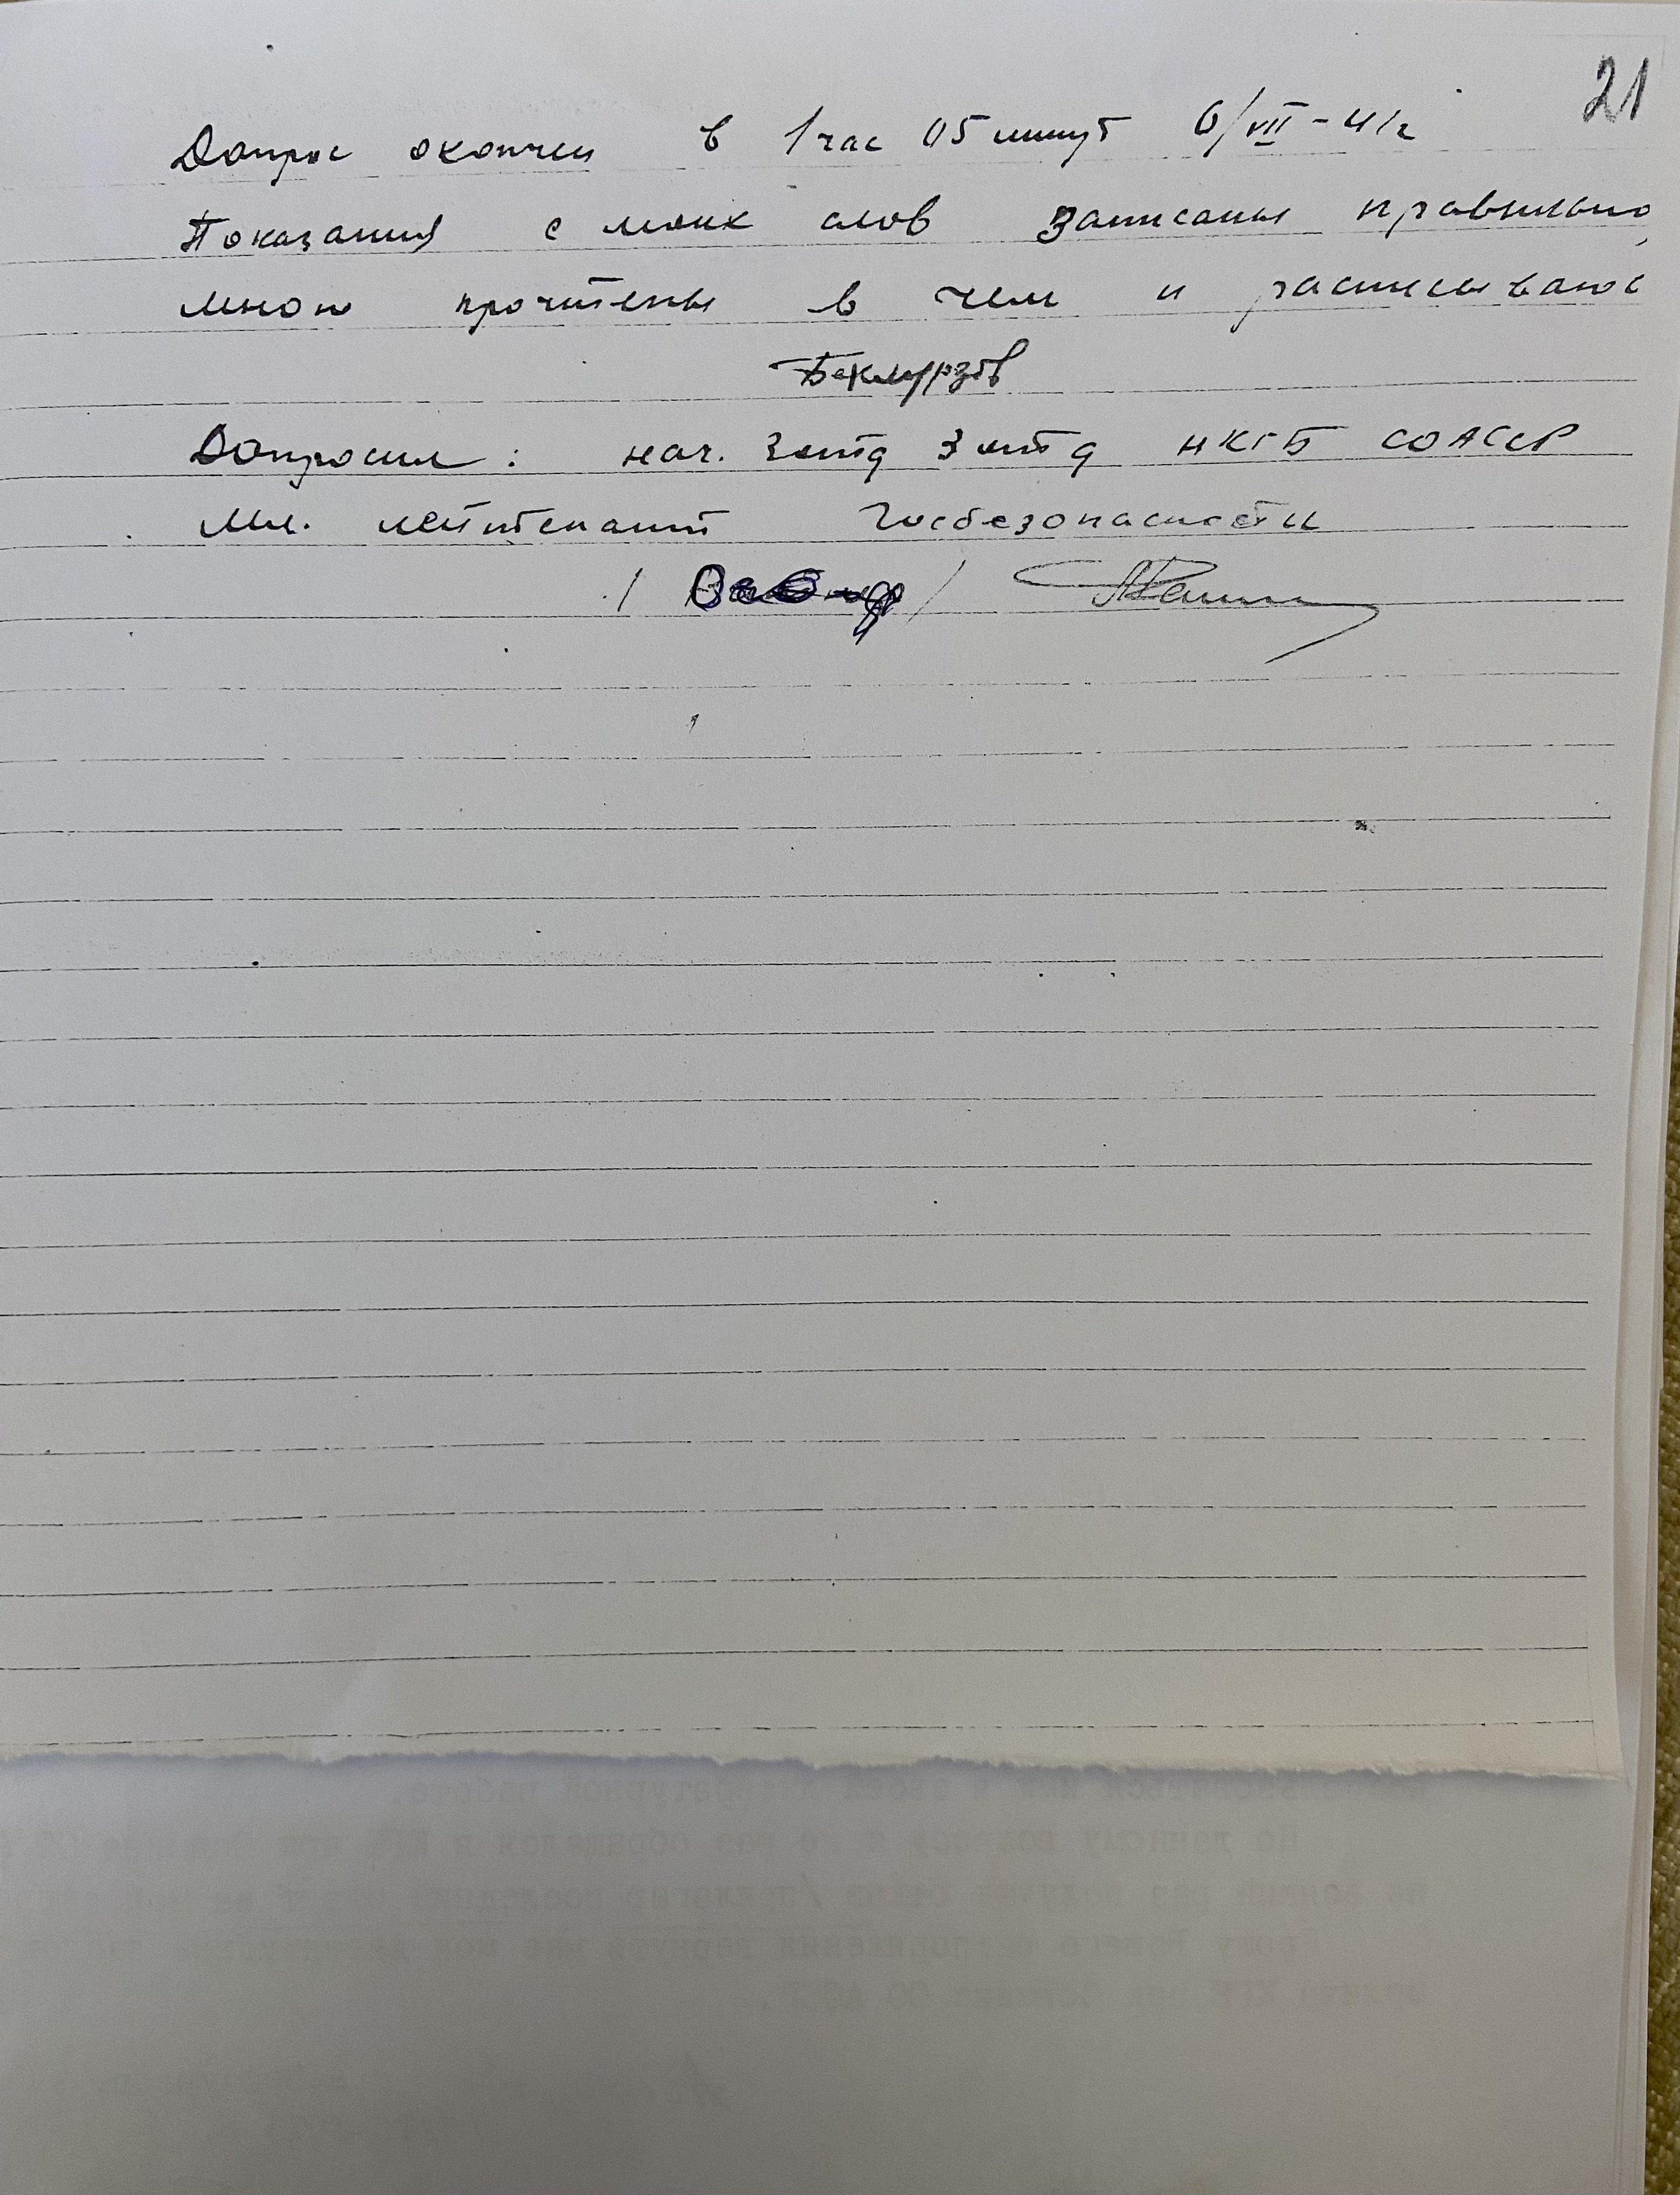 21
Допрос окончен в 1 час 05 минут 6/VII - 41г
Показания с моих слов записаны правильно,
мною прочитены в чем и расписываюс
Бекмурзов
Допросил: нач. 3 отд 3 отд НКГБ СОАССР
Мл. лейтенант Госбезопасности